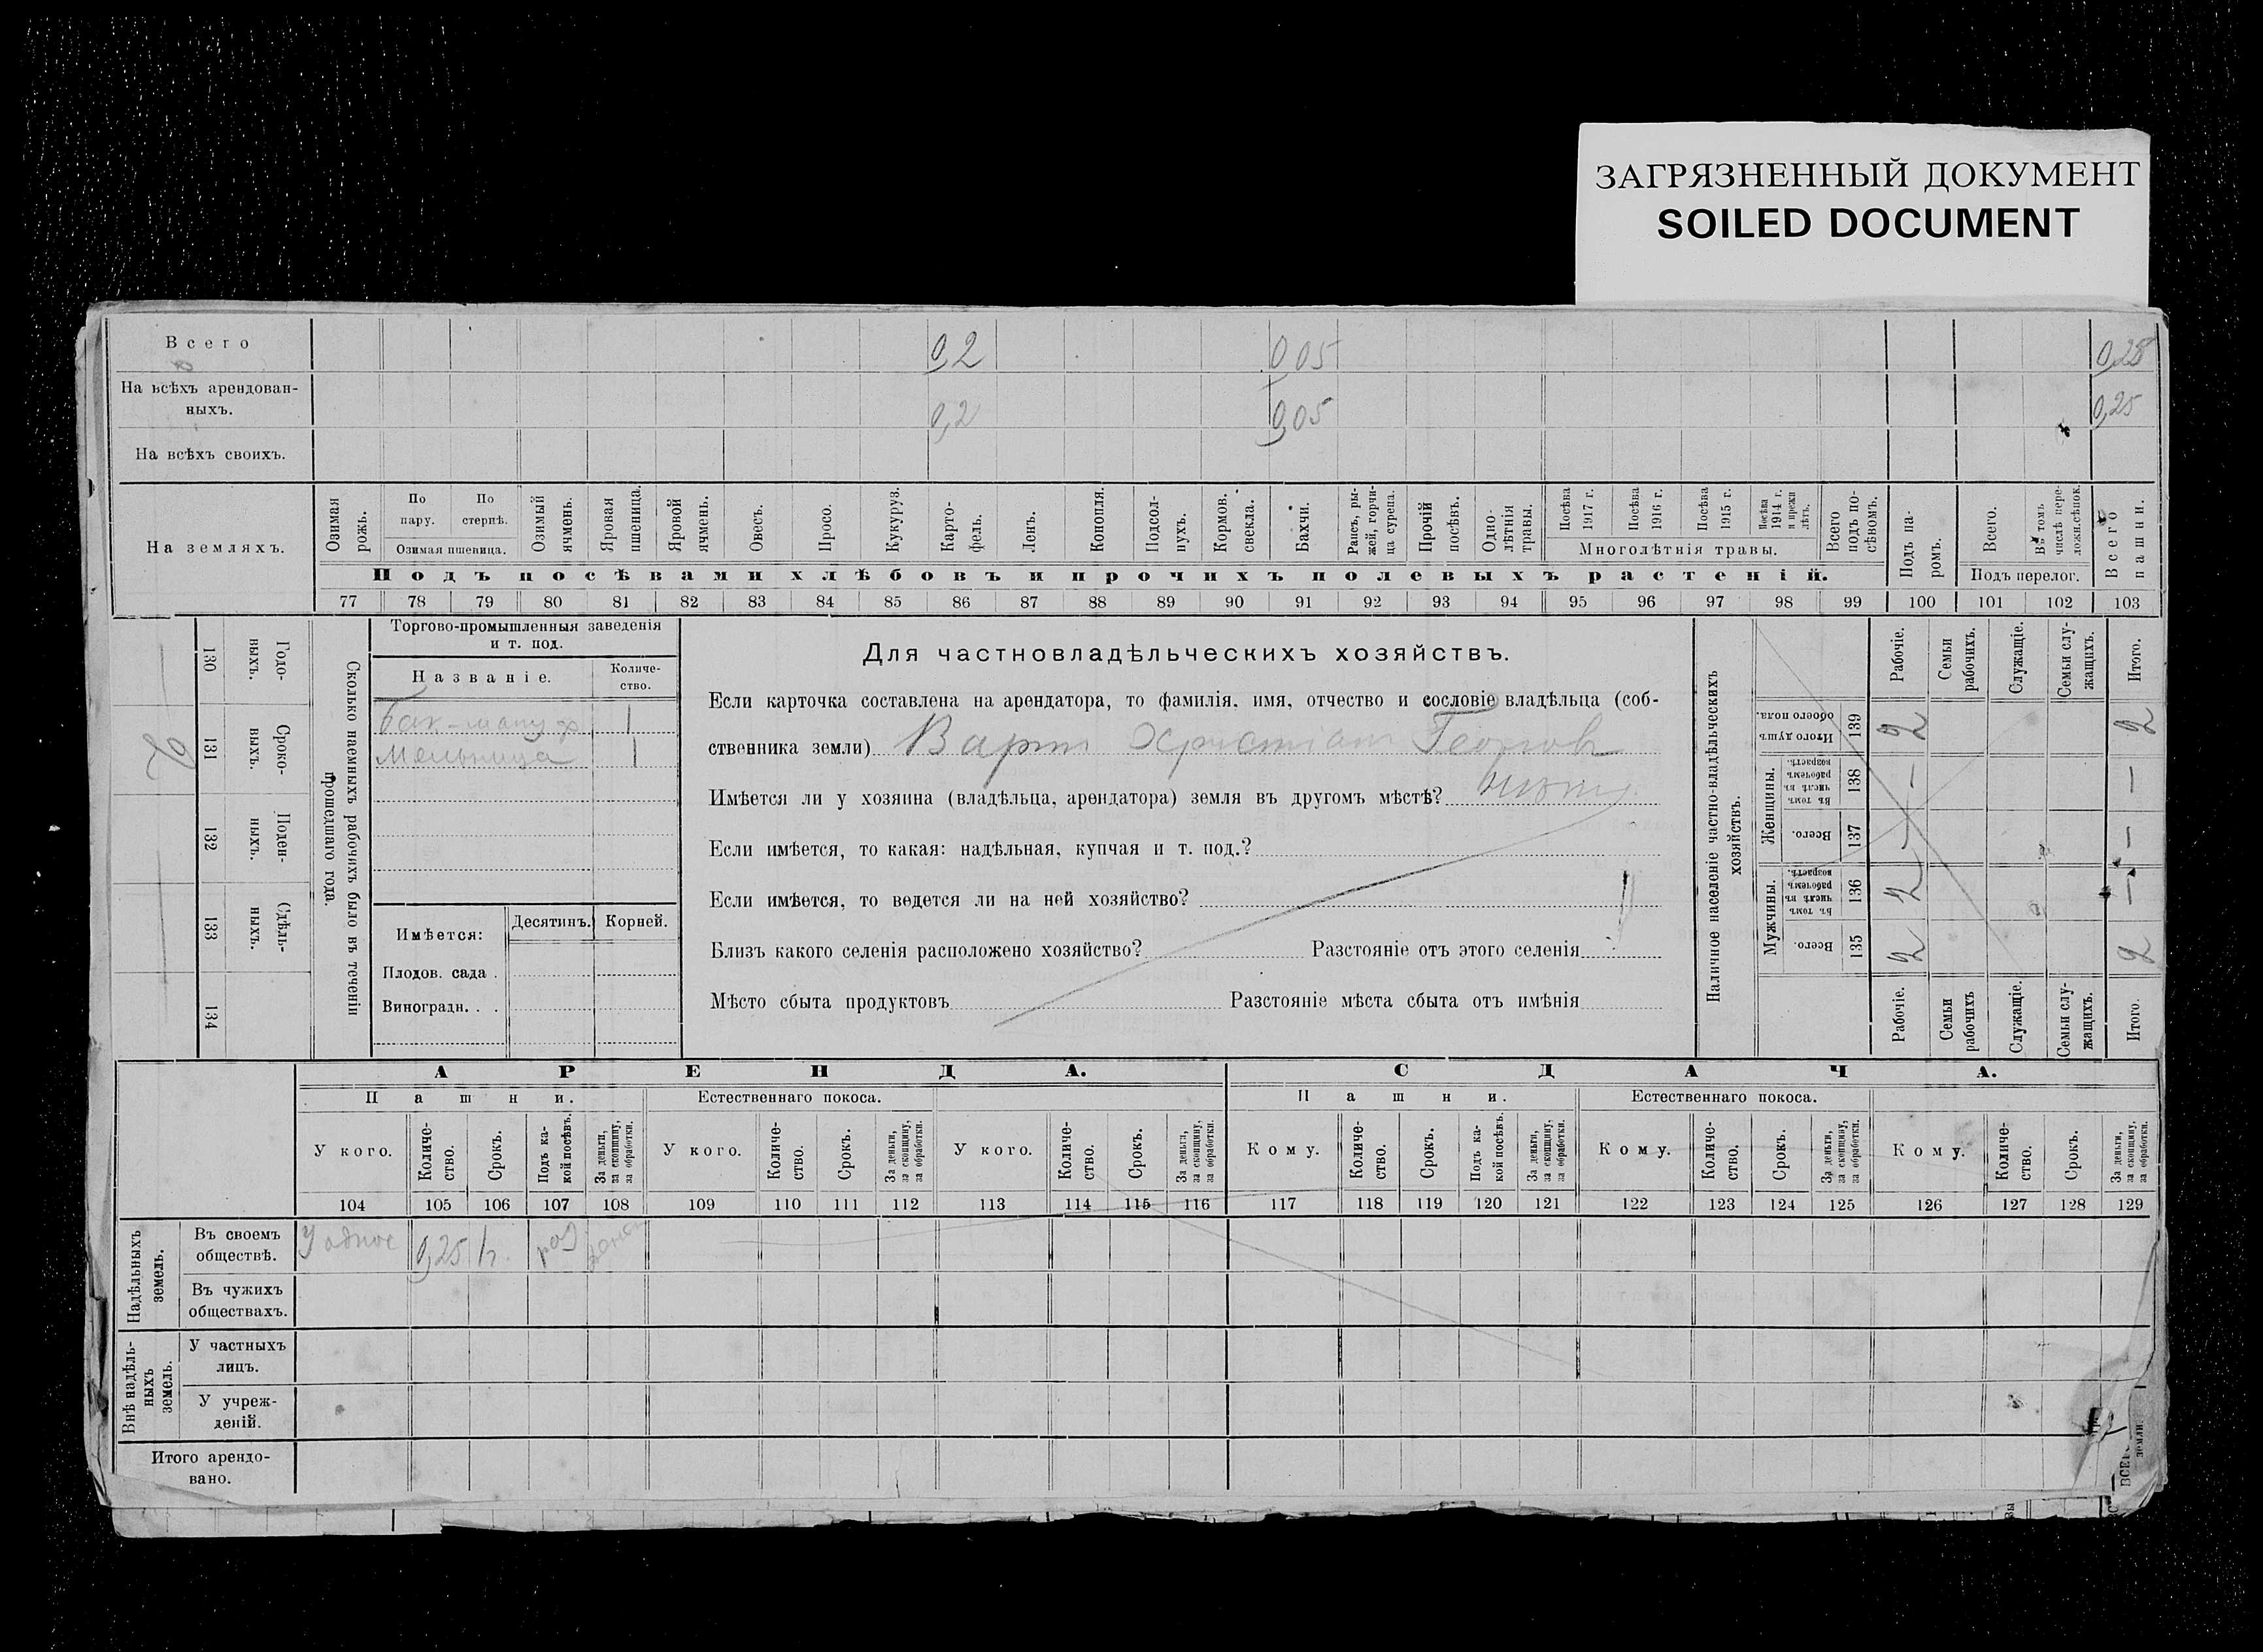 ЗАГРЯЗНЕННЫЙ ДОКУМЕНТ
SOILED DOCUMENT
Всего 0,2 0,05 0,25
На всѣхъ арендован-
ныхъ. 0,2 0,05 0,25
На всѣхъ своихъ.
На земляхъ.
Озимая рожь.
По пару.
По стернѣ.
Озимая пшеница.
Озимый ячмень.
Яровая пшеница.
Яровой ячмень.
Овесъ.
Просо.
Кукуруз.
Карто-
фель.
Ленъ.
Конопля.
Подсол-
нухъ.
Кормов. свекла.
Бахчи.
Рапсъ, ры-
жей, горчи-
ца сурепа.
Прочій посѣвъ.
Одно-
лѣтнія травы.
Посѣва 1917 г.
Посѣва 1916 г.
Посѣва 1915 г.
Посѣва 1914 г. и прежн лѣтъ.
Многолѣтнія травы.
Всего подъ по-
сѣвомъ.
Подъ па-
ромъ.
Всего.
Въ томъ числѣ пере-
ложн.сѣнок.
Подъ перелог.
Всего пашни.
Подъ посѣвами хлѣбовъ и прочихъ полевыхъ растеній.
77 78 79 80 81 82 83 84 85 86 87 88 89 90 91 92 93 94 95 96 97 98 99 100 101 102 103
130 Годо-
ныхъ.
131 Сроко-
выхъ. 2
132 Поден-
ныхъ.
133 Сдѣль-
ныхъ.
134
Сколько наемныхъ рабочихъ было въ теченіи
прошедшаго года.
Торгово-промышленныя заведенія
и т. под.
Названіе. Количе-
ство.
1
Мельница 1
Имѣется: Десятинъ. Корней.
Плодов. сада .
Виноградн. . .
Для частновладѣльческихъ хозяйствъ.
Если карточка составлена на арендатора, то фамилія, имя, отчество и сословіе владѣльца (соб-
ственника земли) Варт Христіан Георгов
Имѣется ли у хозяина (владѣльца, арендатора) земля въ другомъ мѣстѣ?
Если имѣется, то какая: надѣльная, купчая и т. под.?
Если имѣется, то ведется ли на ней хозяйство?
Близъ какого селенія расположено хозяйство? Разстояніе отъ этого селенія
Мѣсто сбыта продуктовъ Разстояніе мѣста сбыта отъ имѣнія
Наличное населеніе частно-владѣльческихъ
хозяйствъ.
Рабочіе. Семьи рабочихъ. Служащіе. Семьи слу-
жащихъ. Итого.
Итого душъ обоего пола. 139 2 2
Женщины.
Въ томъ числѣ въ рабочемъ возрастѣ. 138 — —
Всего. 137 — —
Мужчины.
Въ томъ числѣ въ рабочемъ возрастѣ. 136 2 —
Всего. 135 2 2
Рабочіе. Семьи рабочихъ Служащіе. Семьи слу-
жащихъ. Итого.
АРЕНДА. СДАЧА.
Пашни. Естественнаго покоса. Пашни. Естественнаго покоса.
У кого. Количе-
ство. Срокъ. Подъ ка-
кой посѣвъ. За деньги, за скопщину, за обработки.
У кого. Количе-
ство. Срокъ. За деньги, за скопщину, за обработки.
У кого. Количе-
ство. Срокъ. За деньги, за скопщину, за обработки.
Кому. Количе-
ство. Срокъ. Подъ ка-
кой посѣвъ. За деньги, за скопщину, за обработки.
Кому. Количе-
ство. Срокъ. За деньги, за скопщину, за обработки.
Кому. Количе-
ство. Срокъ. За деньги, за скопщину, за обработки.
104 105 106 107 108 109 110 111 112 113 114 115 116 117 118 119 120 121 122 123 124 125 126 127 128 129
Надѣльныхъ земель.
Въ своемъ
обществѣ. У 0,25
Въ чужихъ
обществахъ.
Внѣ надѣль-
ныхъ земель.
У частныхъ
лицъ.
У учреж-
деній.
Итого арендо-
вано.
земли